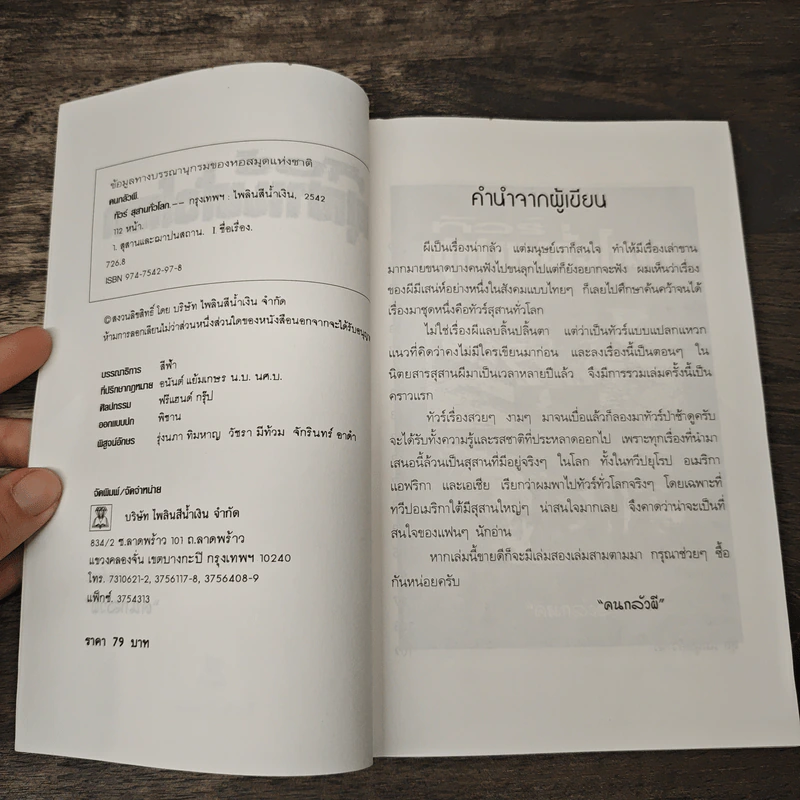 ข้อมูลทางบรรณานุกรมของหอสมุดแห่งชาติ
คนกลัวผี.
ทัวร์ สุสานทั่วโลก.-- กรุงเทพฯ : ไพลินสีน้ำเงิน, 2542
112 หน้า.
1. สุสานและฌาปนสถาน. I. ชื่อเรื่อง.
726.8
ISBN 974-7542-97-8
©สงวนลิขสิทธิ์ โดย บริษัท ไพลินสีน้ำเงิน จำกัด
ห้ามการลอกเลียนไม่ว่าส่วนหนึ่งส่วนใดของหนังสือนอกจากจะได้รับ
บรรณาธิการ สีฟ้า
ที่ปรึกษากฎหมาย อนันต์ แย้มเกษร น.บ. นศ.บ.
ศิลปกรรม ฟรีแฮนด์ กรุ๊ป
ออกแบบปก พิชาน
พิสูจน์อักษร รุ่งนภา ทิมหาญ วัชรา มีท้วม จักรินทร์ อาดำ
จัดพิมพ์/จัดจำหน่าย
บริษัท ไพลินสีน้ำเงิน จำกัด
834/2 ซ.ลาดพร้าว 101 ถ.ลาดพร้าว
แขวงคลองจั่น เขตบางกะปิ กรุงเทพฯ 10240
โทร. 7310621-2, 3756117-8, 3756408-9
แฟ็กซ์. 3754313
ราคา 79 บาท
คำนำจากผู้เขียน
ผีเป็นเรื่องน่ากลัว แต่มนุษย์เราก็สนใจ ทำให้มีเรื่องเล่าขาน
มากมายขนาดบางคนฟังไปขนลุกไปแต่ก็ยังอยากจะฟัง ผมเห็นว่าเรื่อง
ของผีมีเสน่ห์อย่างหนึ่งในสังคมแบบไทยๆ ก็เลยไปศึกษาค้นคว้าจนได้
เรื่องมาชุดหนึ่งคือทัวร์สุสานทั่วโลก
ไม่ใช่เรื่องผีแลบลิ้นปลิ้นตา แต่ว่าเป็นทัวร์แบบแปลกแหวก
แนวที่คิดว่าคงไม่มีใครเขียนมาก่อน และลงเรื่องนี้เป็นตอนๆ ใน
นิตยสารสุสานผีมาเป็นเวลาหลายปีแล้ว จึงมีการรวมเล่มครั้งนี้เป็น
คราวแรก
ทัวร์เรื่องสวยๆ งามๆ มาจนเบื่อแล้วก็ลองมาทัวร์ป่าช้าดูครับ
จะได้รับทั้งความรู้และรสชาติที่ประหลาดออกไป เพราะทุกเรื่องที่นำมา
เสนอนี้ล้วนเป็นสุสานที่มีอยู่จริงๆ ในโลก ทั้งในทวีปยุโรป อเมริกา
แอฟริกา และเอเชีย เรียกว่าผมพาไปทัวร์ทั่วโลกจริงๆ โดยเฉพาะที่
ทวีปอเมริกาใต้มีสุสานใหญ่ๆ น่าสนใจมากเลย จึงคาดว่าน่าจะเป็นที่
สนใจของแฟนๆ นักอ่าน
หากเล่มนี้ขายดีก็จะมีเล่มสองเล่มสามตามมา กรุณาช่วยๆ ซื้อ
กันหน่อยครับ
"คนกลัวผี"